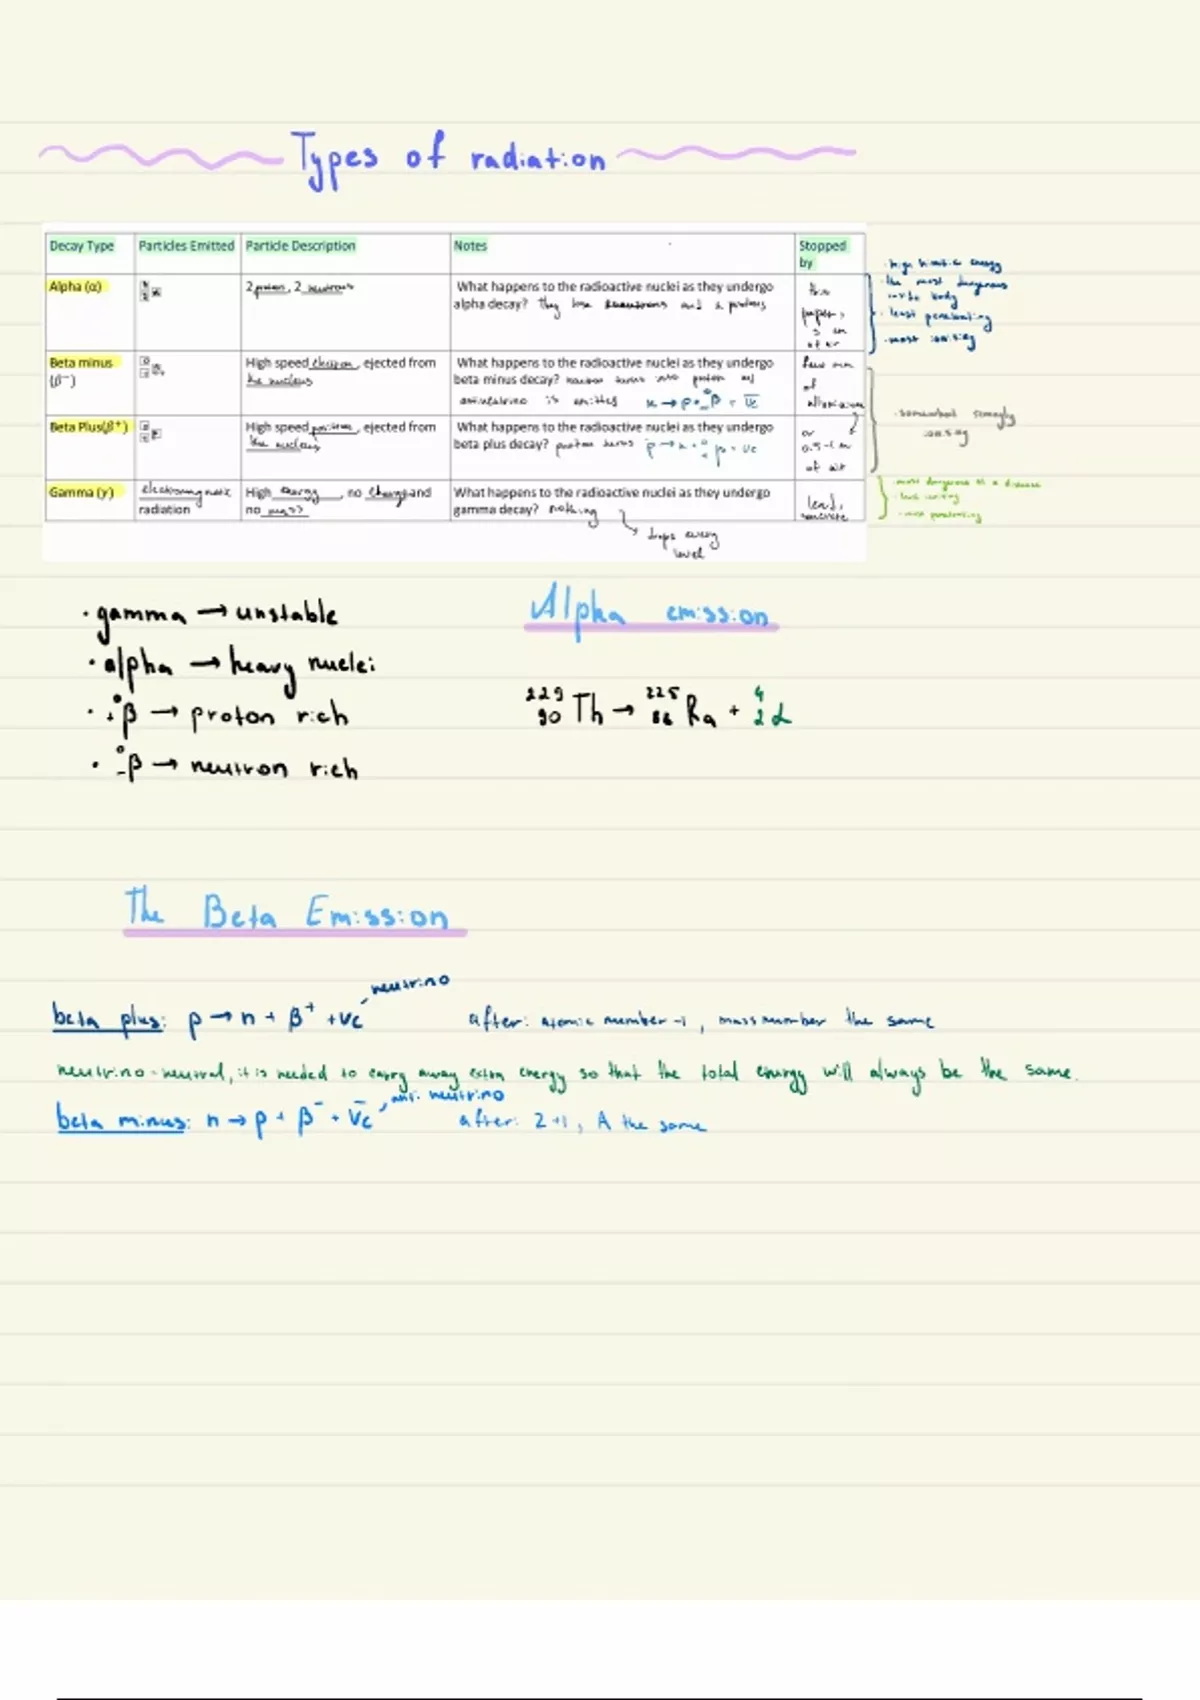 Types of radiation
Decay Type Particles Emitted Particle Description Notes Stopped by
Alpha (α) 2 protons, 2 neutrons What happens to the radioactive nuclei as they undergo
alpha decay? They lose 2 neutrons and 2 protons
thin
paper,
5 cm
of air
· high kinetic energy
· the most dangerous
inside body
· least penetrating
· most ionising
Beta minus High speed electron, ejected from What happens to the radioactive nuclei as they undergo
(β⁻) the nucleus beta minus decay? neutron turns into proton and
antineutrino is emitted n → p + ⁰₋β + v̄e
few mm
of
Beta Plus(β⁺) High speed positron, ejected from What happens to the radioactive nuclei as they undergo
the nucleus beta plus decay? proton turns p → n + ⁰₊β + ve
or
0.5-1 m
of air
· somewhat strongly
ionising
Gamma (γ) electromagnetic High energy, no charge and What happens to the radioactive nuclei as they undergo
radiation no mass gamma decay? nothing
drops energy
level
lead,
concrete
· most dangerous at a distance
· least ionising
· most penetrating
· gamma → unstable
· alpha → heavy nuclei
· ⁰₊β → proton rich
· ⁰₋β → neutron rich
Alpha emission
²²⁹₉₀Th → ²²⁵₈₈Ra + ⁴₂α
The Beta Emission
neutrino
beta plus: p → n + β⁺ + ve after: atomic number -1, mass number the same
neutrino - neutral, it is needed to carry away extra energy so that the total energy will always be the same.
anti-neutrino
beta minus: n → p + β⁻ + v̄e after: Z +1, A the same